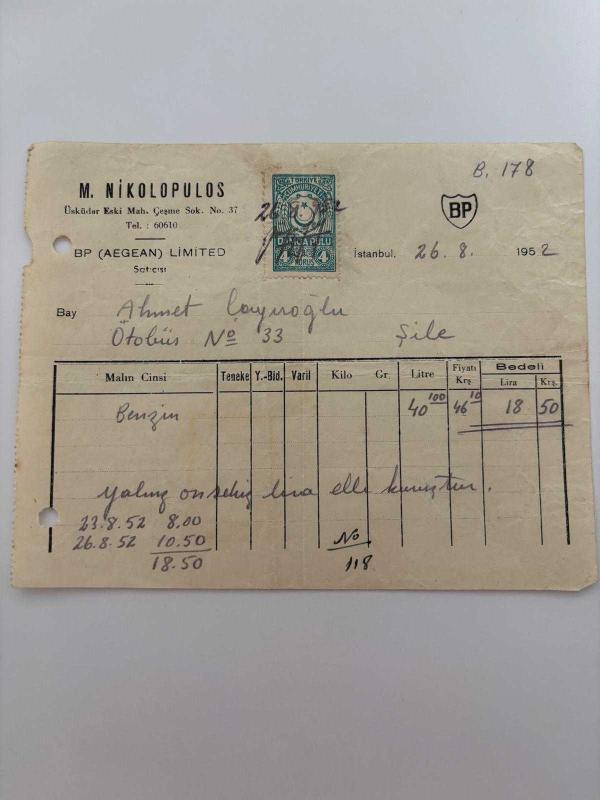 B. 178
M. NİKOLOPULOS
Üsküdar Eski Mah. Çeşme Sok. No. 37
Tel. : 60610
BP (AEGEAN) LİMİTED
Satıcısı
TÜRKİYE CUMHURİYETİ
DAMGA PULU
4 KURUŞ 4
BP
İstanbul, 26. 8. 1952
Bay Ahmet Çayıroğlu
Otobüs No 33 Şile
Malın Cinsi Teneke Y.-Bid. Varil Kilo Gr. Litre Fiyatı Krş Bedeli Lira Krş.
Benzin 40 100 46 10 18 50
Yalnız onsekiz lira elli kuruştur.
23.8.52 8.00
26.8.52 10.50
18.50
No
118